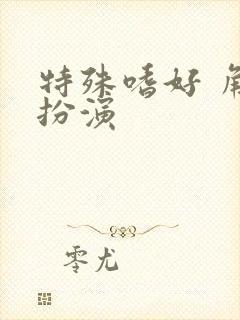 特殊嗜好 角
扮演
零尤